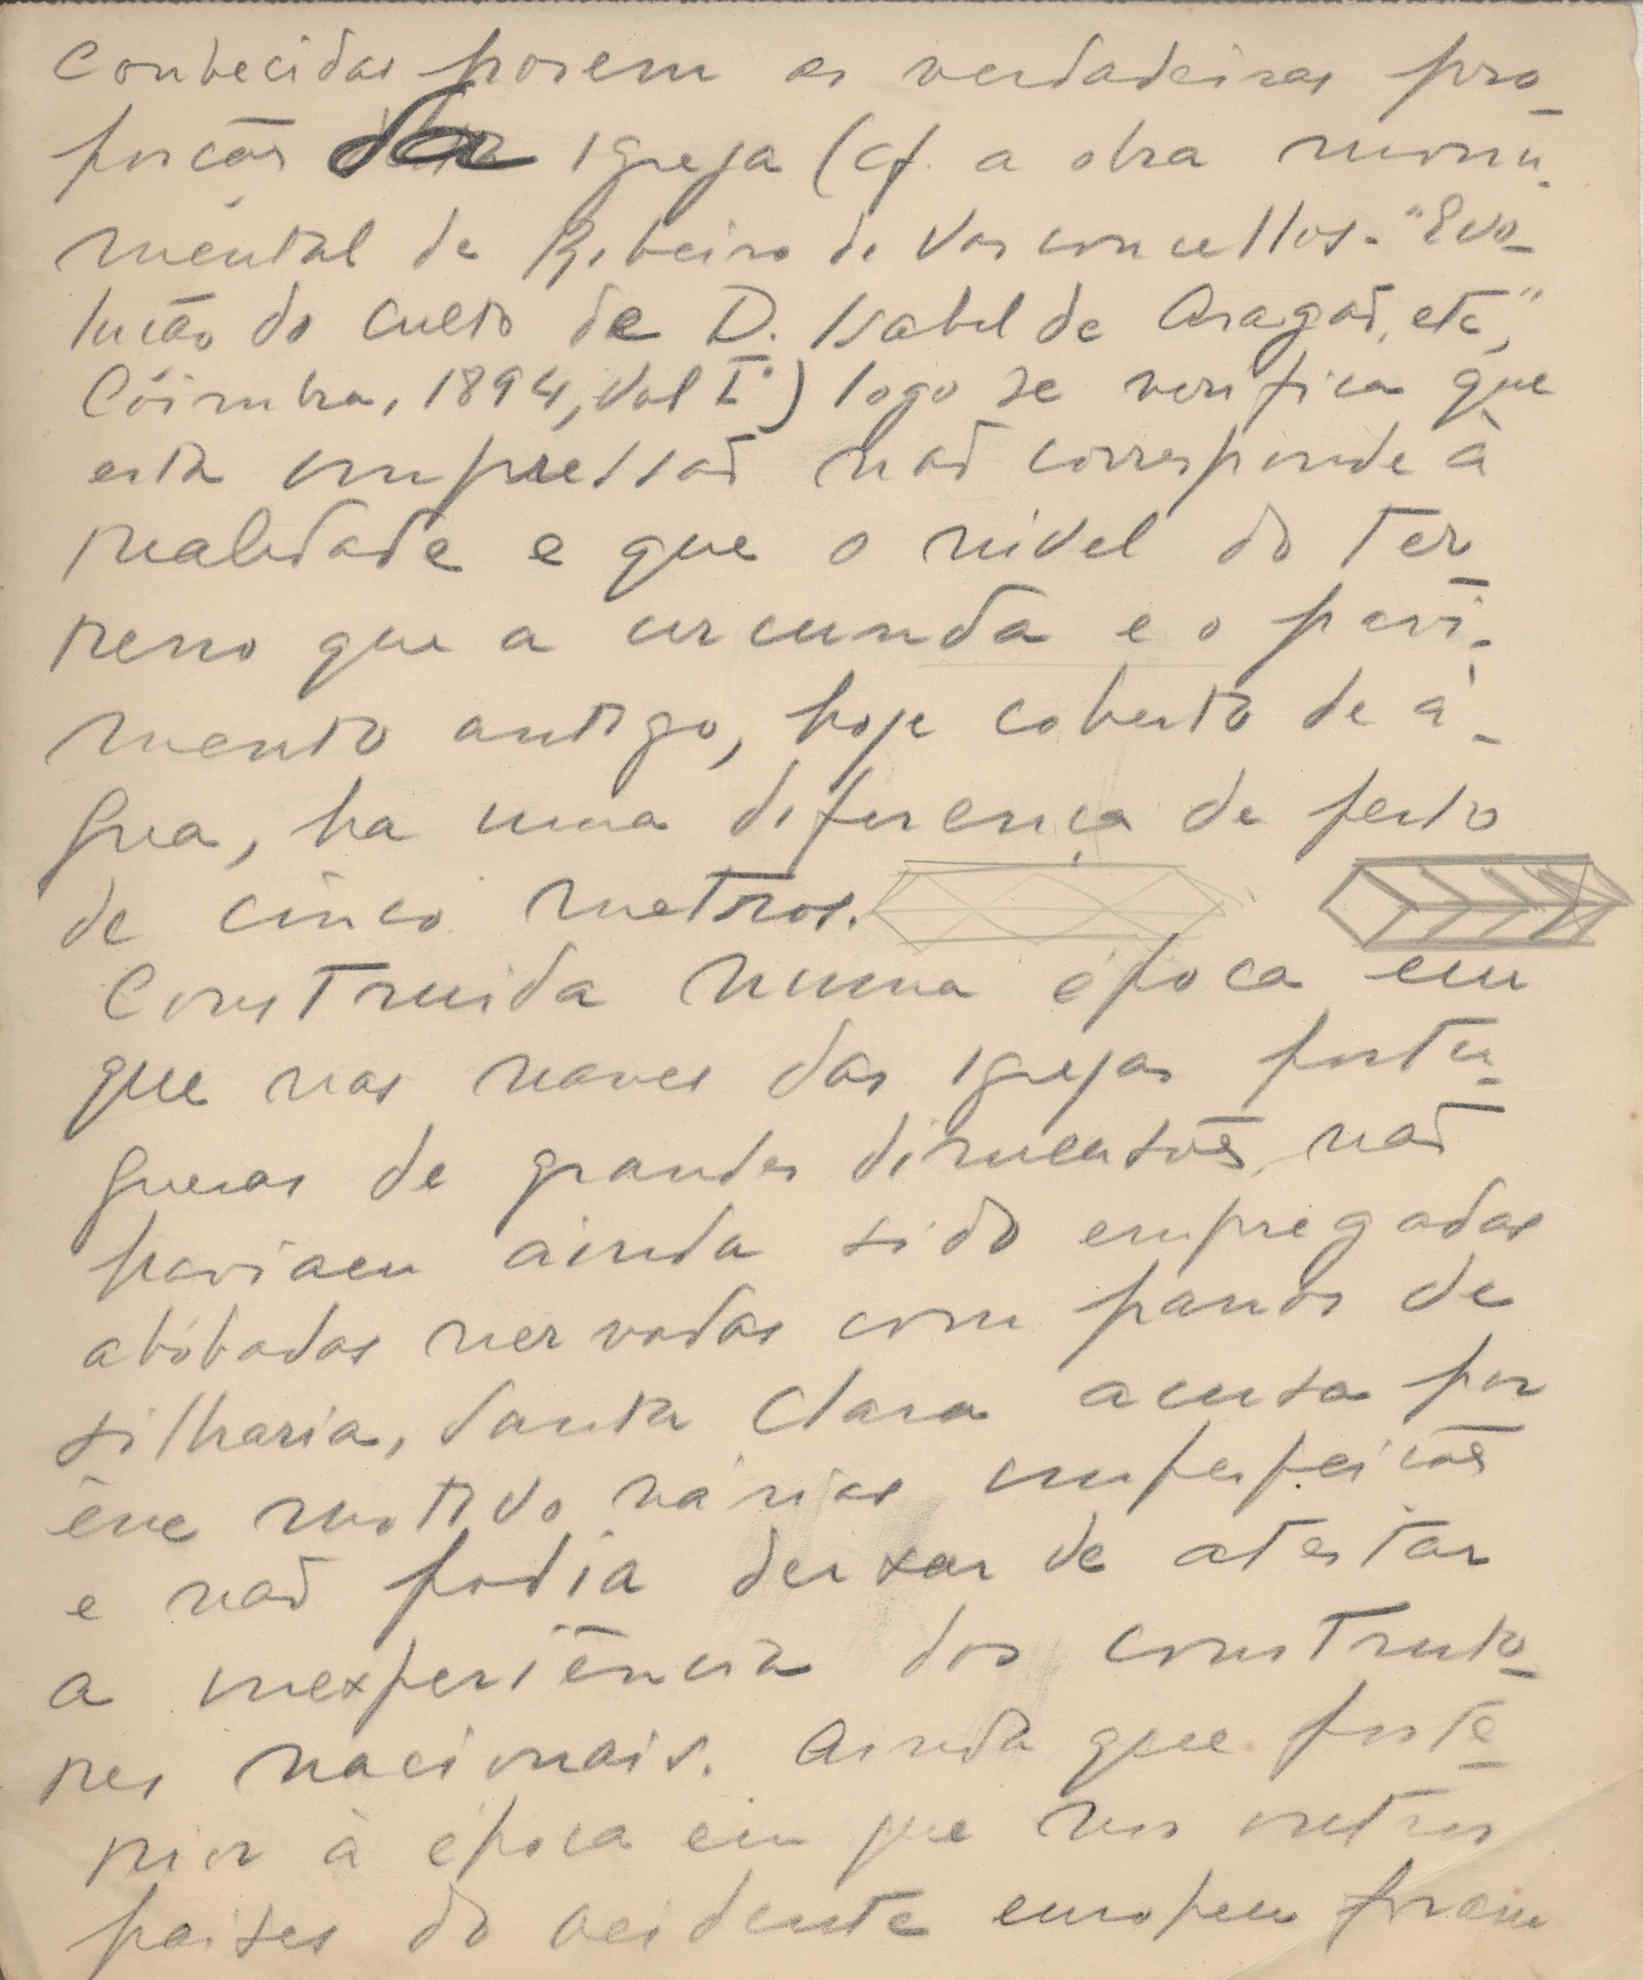 Conhecidas porem as verdadeiras pro-
porcões da igreja (cf. a obra monu-
mental de Ribeiro de Vasconcellos. "Evo-
lucão do culto de D. Isabel de Aragão, etc,"
Cóimbra, 1894, Vol I.º) logo se verifica que
esta impressão não corresponde à
realidade e que o nivel do ter-
reno que a circunda e o pavi-
mento antigo, hoje coberto de á-
gua, ha uma diferença de perto
de cinco metros.
Construida numa época em
que nas naves das igrejas portu-
guesas de grandes dimensões não
haviam ainda sido empregadas
abóbadas nervadas com panos de
silharia, Santa Clara acusa por
êsse motivo várias imperfeicões
e não podia deixar de atestar
a inexperiência dos construto-
res nacionais. Ainda que poste-
rior à época em que nos outros
paises do ocidente europeu foram